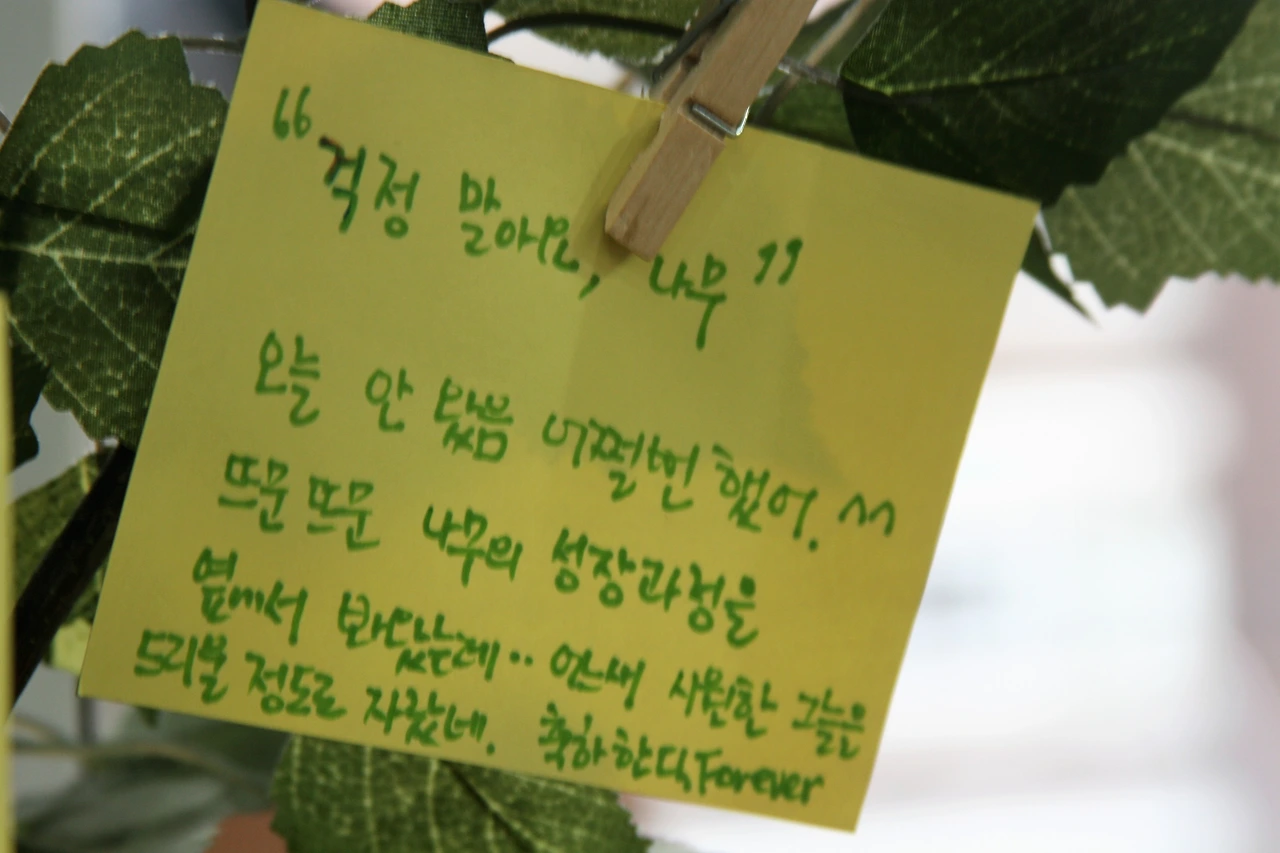 “걱정 말아요, 나무”
오늘 안 왔음 어쩔번 했어. ^^
뜨문뜨문 나무의 성장과정을
옆에서 봐왔는데.. 언느새 시원한 그늘을
드리울 정도로 자랐네. 축하한다, Forever